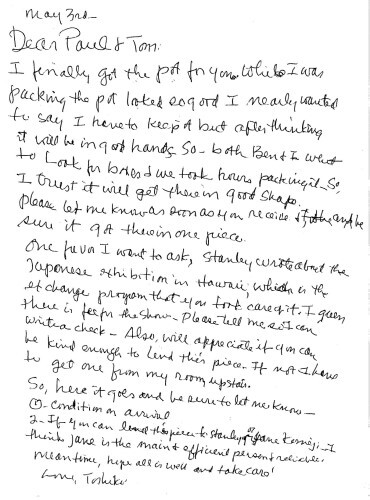 May 3rd-
Dear Paul & Tom:
I finally got the pot for you. While I was
packing the pot looked so good I nearly wanted
to say I have to keep it but after thinking
it will be in good hands. So - both Ben & I went
to look for boxes & we took hours packing it. So,
I trust it will get there in good shape.
Please let me know as soon as you receive it, and be
sure it got there in one piece.
One favor I want to ask, Stanley wrote about the
Japanese exhibition in Hawaii, which is the
exchange program that you took care of it. I guess
there is fee for the show - Please tell me so I can
write a check - Also, will appreciate if you can
be kind enough to lend this piece. If not I have
to get one from my room upstair.
So, here it goes and be sure to let me know -
1- Condition on arrival
2- If you can lend this piece to Stanley or Jane - I
think Jane is the main & efficient person & reliable.
meantime, hope all is well and take care!
Love, Toshiko